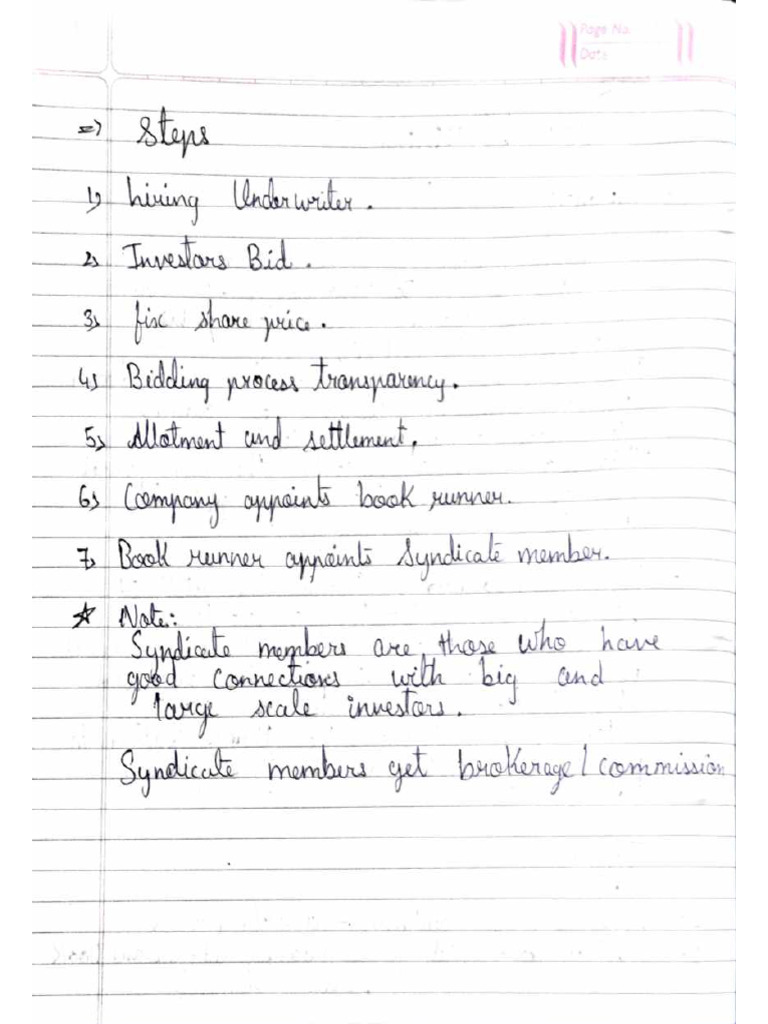 Page No.
Date
=> Steps
1) hiring Underwriter.
2) Investors Bid.
3) fix share price.
4) Bidding process transparency.
5) Allotment and settlement.
6) Company appoints book runner.
7) Book runner appoints Syndicate member.
☆ Note:
Syndicate members are those who have
good connections with big and
large scale investors.
Syndicate members get brokerage/commission